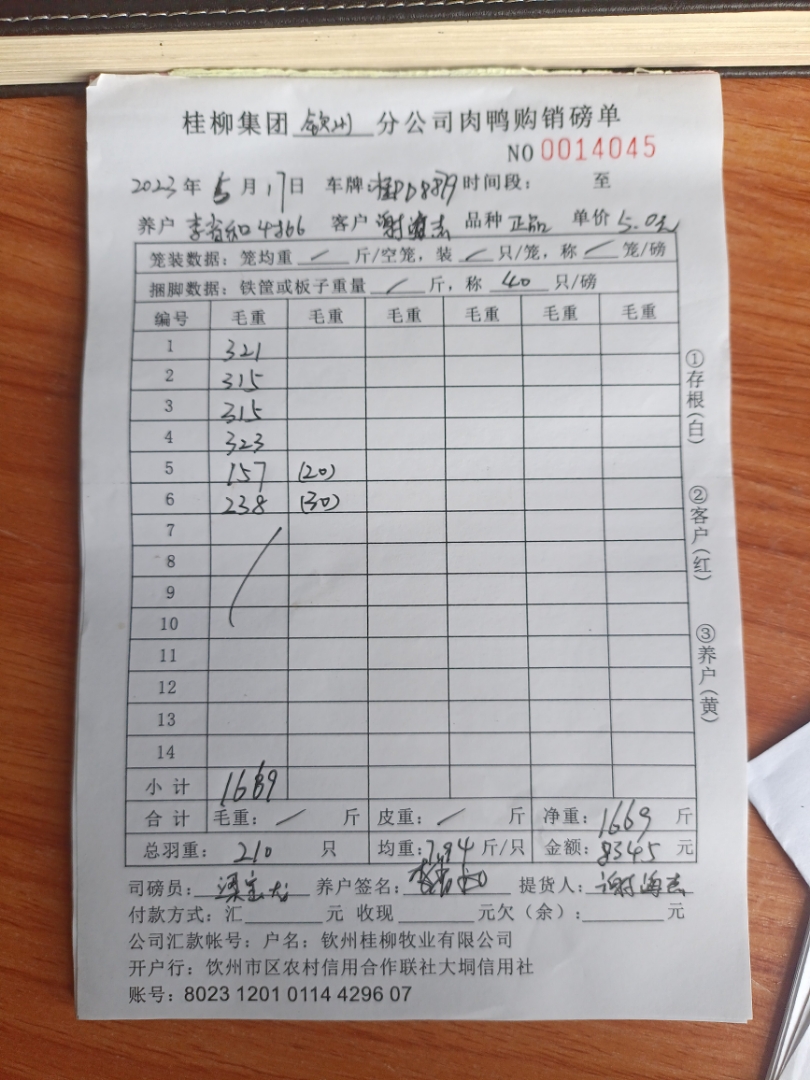 桂柳集团 钦州 分公司肉鸭购销磅单
NO 0014045
2023年 5月17日 车牌: 桂PD8879 时间段: 至
养户 李省和4366 客户 谢海杰 品种 正品 单价 5.0元
笼装数据: 笼均重 / 斤/空笼, 装 / 只/笼, 称 / 笼/磅
捆脚数据: 铁筐或板子重量 / 斤, 称 40 只/磅
编号 毛重 毛重 毛重 毛重 毛重 毛重
1 321
2 315
3 315
4 323
5 157 (20)
6 238 (30)
7
8
9
10
11
12
13
14
小计 1669
合计 毛重: / 斤 皮重: / 斤 净重: 1669 斤
总羽重: 210 只 均重: 7.94 斤/只 金额: 8345 元
司磅员: 养户签名: 提货人: 谢海杰
付款方式: 汇 元 收现 元欠(余): 元
公司汇款帐号: 户名: 钦州桂柳牧业有限公司
开户行: 饮州市区农村信用合作联社大垌信用社
账号: 8023 1201 0114 4296 07
①存根(白)
②客户(红)
③养户(黄)